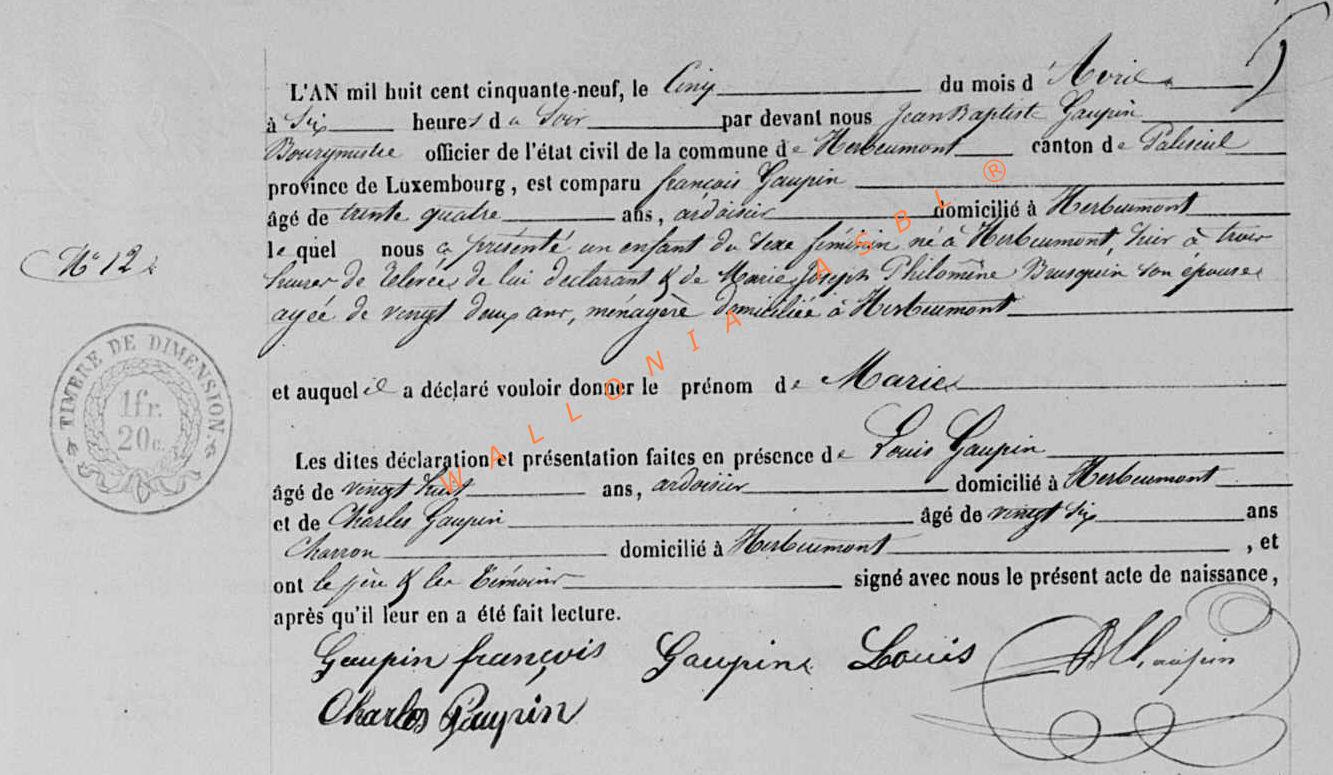 L'AN mil huit cent cinquante-neuf, le Cinq du mois d'Avril
à Six heures du Soir par devant nous Jean Baptiste Gaupin
Bourgmestre officier de l'état civil de la commune de Herbeumont canton de Paliseul
province de Luxembourg, est comparu françois Gaupin
âgé de trente quatre ans, ardoisier domicilié à Herbeumont
lequel nous a présenté un enfant du Sexe féminin né à Herbeumont, hier à trois
heures de relevée, de lui déclarant & de Marie Joseph Philomène Brasquin son épouse
agée de vingt deux ans, ménagère domiciliée à Herbeumont
N° 12
TIMBRE DE DIMENSION.
1fr.
20c.
et auquel il a déclaré vouloir donner le prénom de Marie
Les dites déclaration et présentation faites en présence de Louis Gaupin
âgé de vingt huit ans, ardoisier domicilié à Herbeumont
et de Charles Gaupin âgé de vingt six ans
Charron domicilié à Herbeumont, et
ont le père & les témoins signé avec nous le présent acte de naissance,
après qu'il leur en a été fait lecture.
Gaupin françois Gaupin Louis
Charles Gaupin
WALLONIA ASBL ®